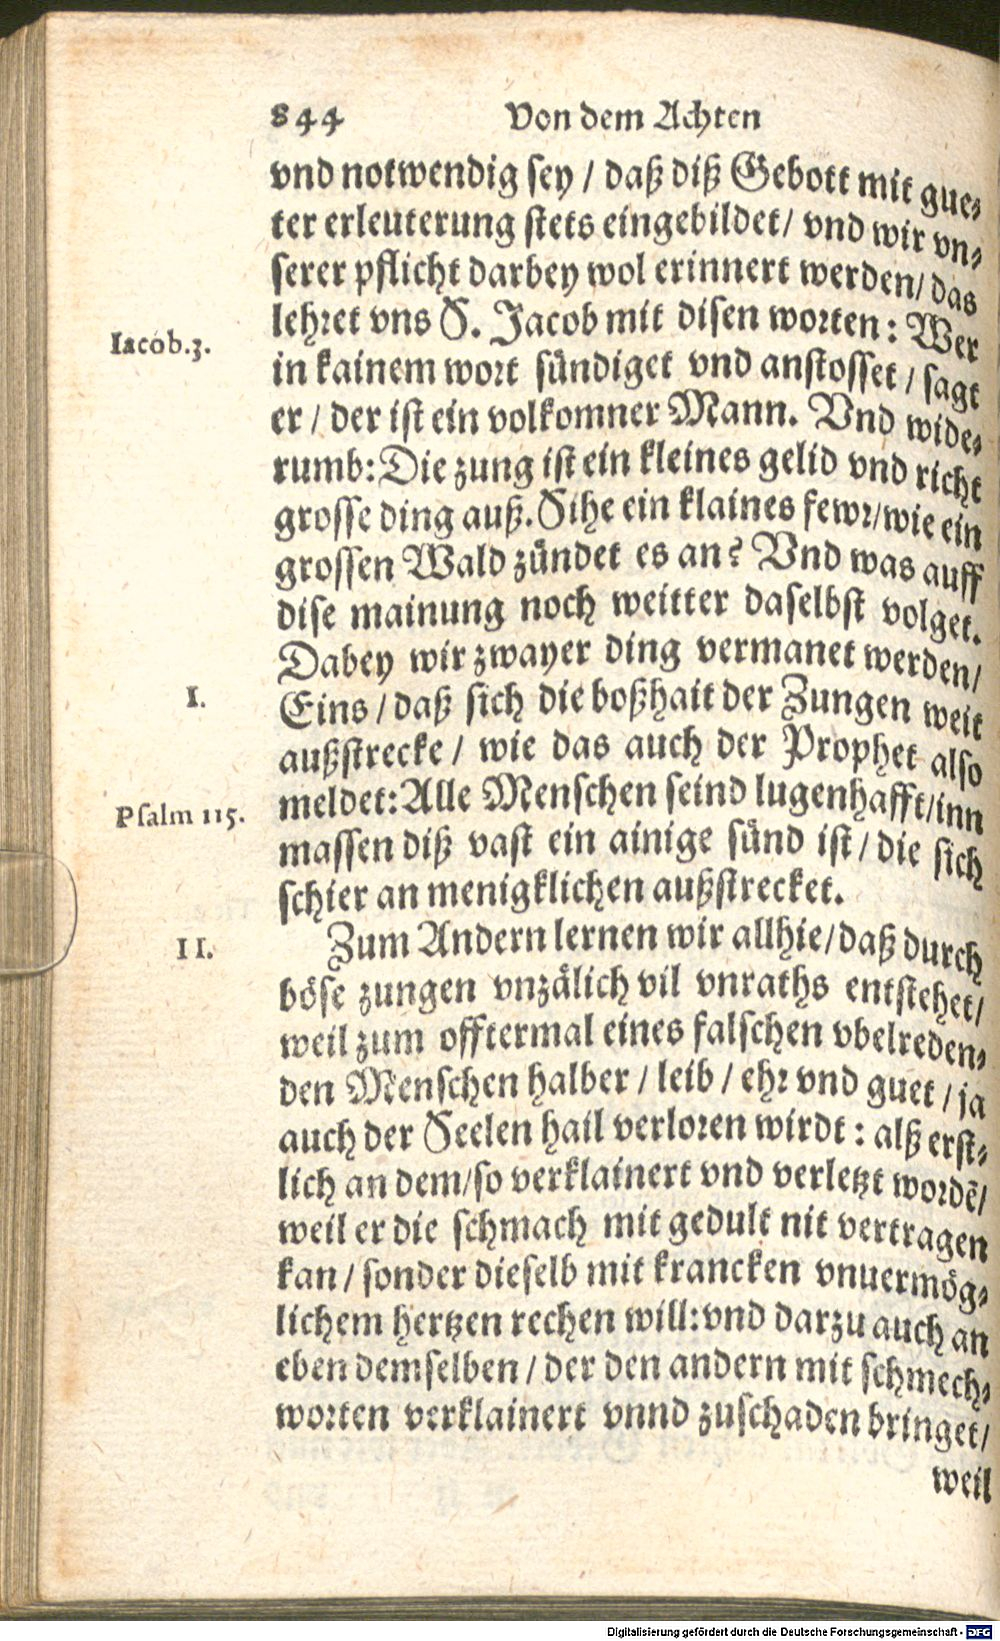 844 Von dem Achten
vnd notwendig sey / daß diß Gebott mit gue⸗
ter erleuterung stets eingebildet/ vnd wir vn⸗
serer pflicht darbey wol erinnert werden/ das
lehret vns S. Jacob mit disen worten: Wer
Iacob.3.
in kainem wort sündiget vnd anstosset / sagt
er / der ist ein volkomner Mann. Vnd wide⸗
rumb: Die zung ist ein kleines gelid vnd richt
grosse ding auß. Sihe ein klaines fewr/wie ein
grossen Wald zündet es an? Vnd was auff
dise mainung noch weitter daselbst volget.
Dabey wir zwayer ding vermanet werden/
I.
Eins / daß sich die boßhait der Zungen weit
außstrecke / wie das auch der Prophet also
Psalm 115.
meldet: Alle Menschen seind lugenhafft/inn
massen diß vast ein ainige sünd ist / die sich
schier an menigklichen außstrecket.
II.
Zum Andern lernen wir allhie/daß durch
böse zungen vnzälich vil vnraths entstehet/
weil zum offtermal eines falschen vbelreden⸗
den Menschen halber / leib / ehr vnd guet / ja
auch der Seelen hail verloren wirdt : alß erst⸗
lich an dem/so verklainert vnd verletzt wordē/
weil er die schmach mit gedult nit vertragen
kan / sonder dieselb mit krancken vnuermög⸗
lichem hertzen rechen will: vnd darzu auch an
eben demselben / der den andern mit schmech⸗
worten verklainert vnnd zuschaden bringet/
weil
Digitalisierung gefördert durch die Deutsche Forschungsgemeinschaft - DFG